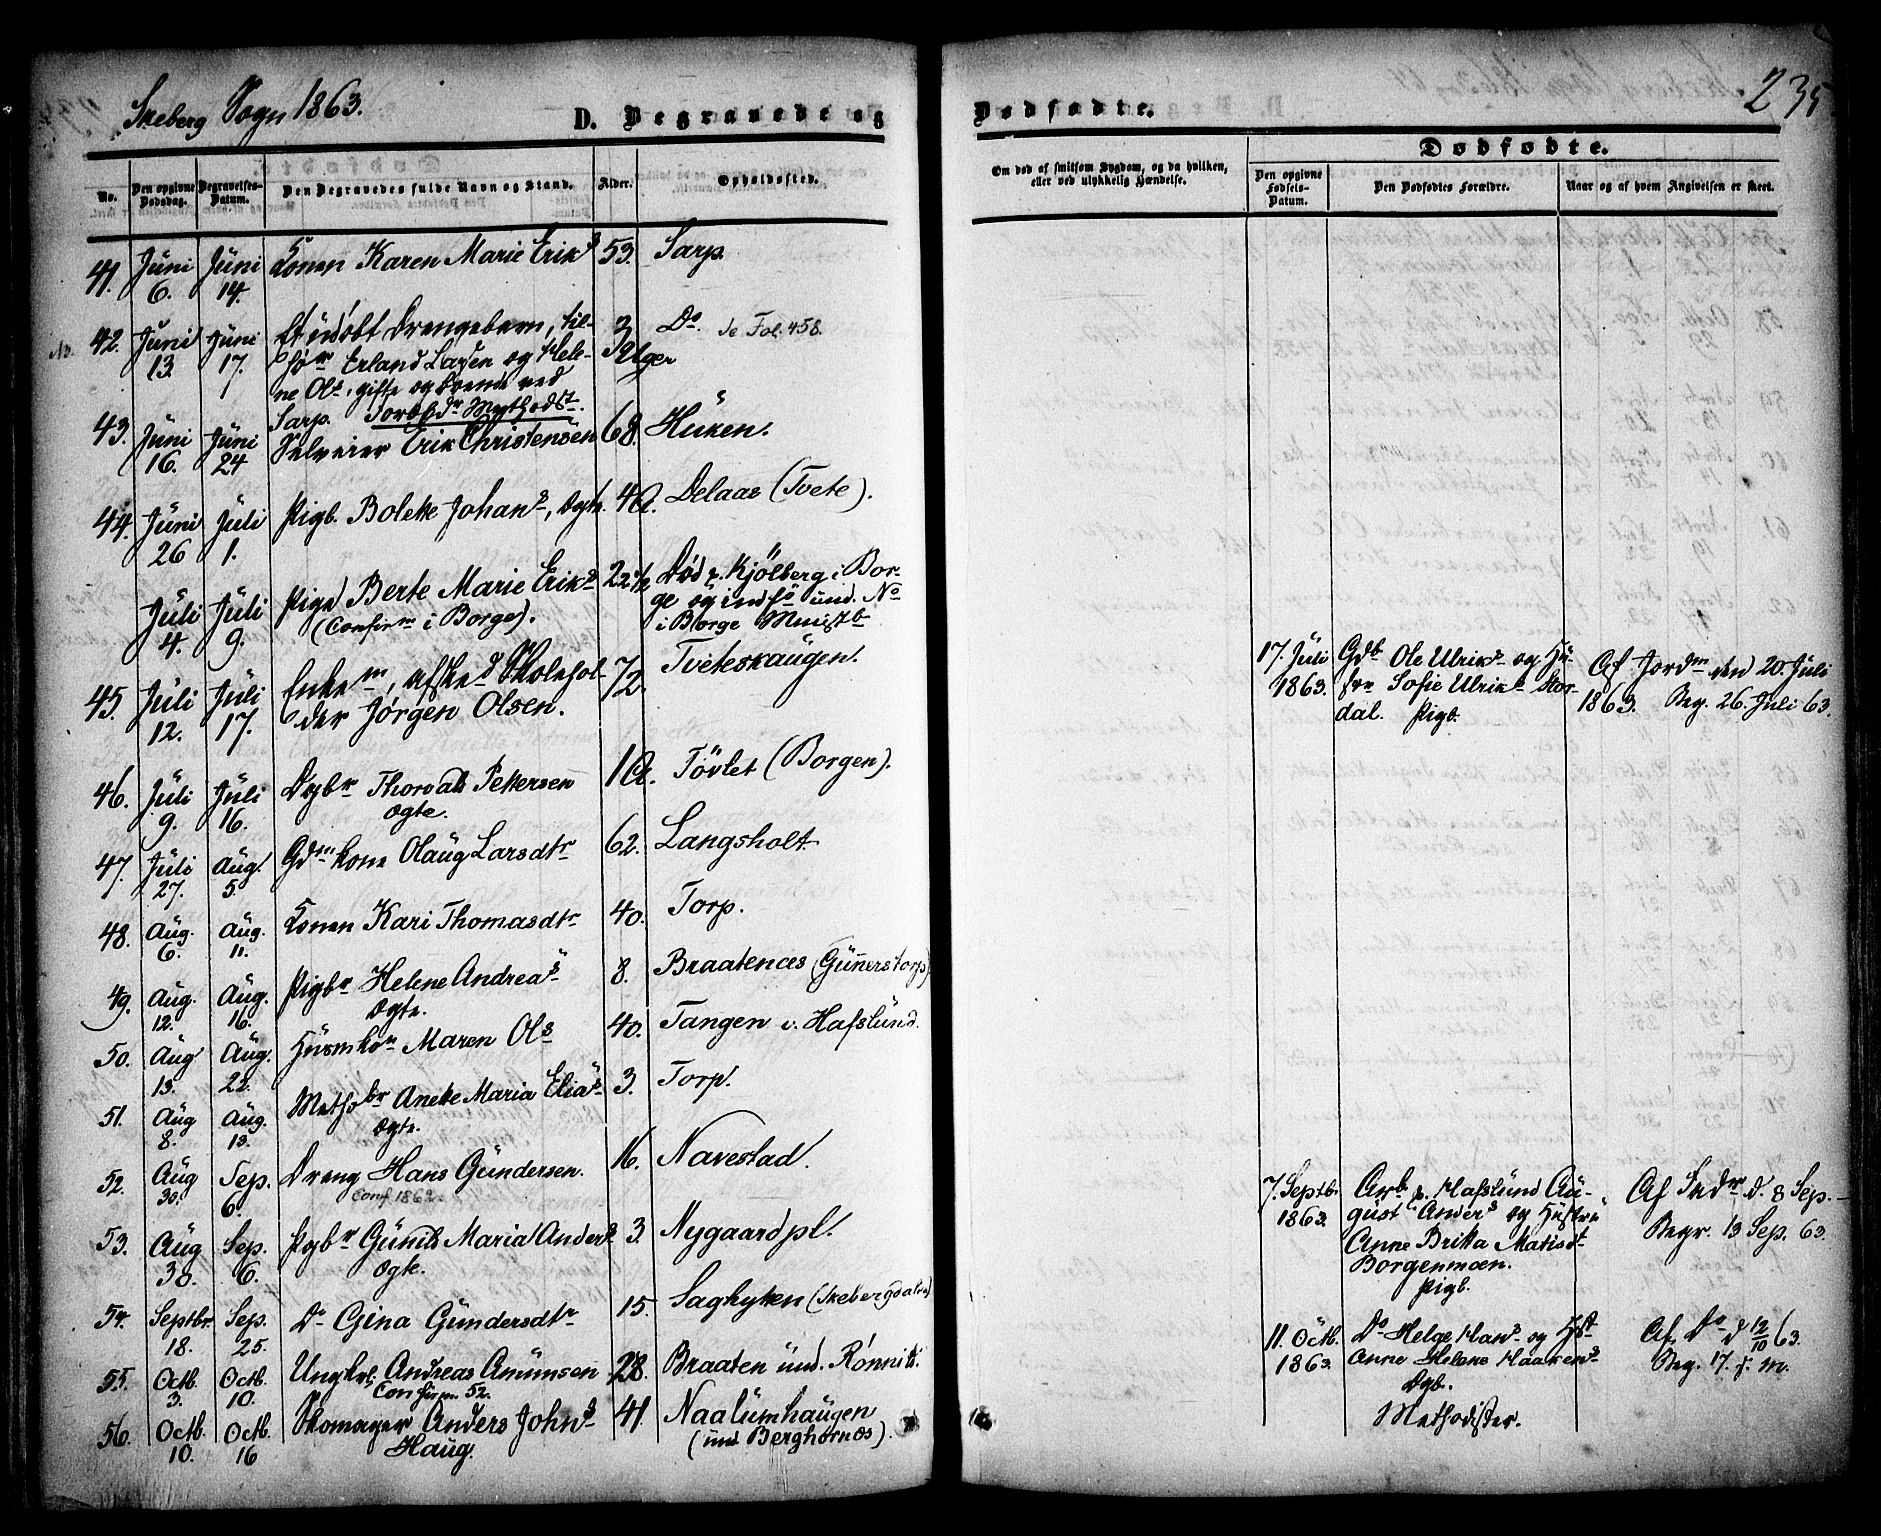 Skeberg Sogn 1863.
D. Begravede og
Dødfødte.
235
No.
Den opgivne Dødsdag.
Begravelses-Datum.
Den Begravedes fulde Navn og Stand.
Alder.
Opholdssted.
Om død af smitsom Sygdom, og da hvilken,
eller ved ulykkelig Hændelse.
Dødfødte.
Den opgivne Fødsels-Datum.
Den Dødfødtes Forældre.
Naar og af hvem Angivelsen er skeet.
41. Juni 6. Juni 14. Konen Karen Marie Eriks 53. Sarp.
42. Juni 13. Juni 17. Et udøbt Drengebarn, til- 3 Uger Do. se Fol. 458.
hørr Erland Larsen og Hele-
ne Ols, gifte og boende ved
Sarp. Forældr Methodist.
43. Juni 16. Juni 24 Selveier Erik Christensen 68. Huken.
44. Juni 26 Juli 1. Pigb. Bolette Johans, Ægte. 4 Delaas (Tvete).
Juli 4. Juli 9. Pige Berte Marie Eriks 22 Død p. Kjölberg i Bor-
(Confirm i Borge). ge og indfö und. No
i Borge Ministb
45. Juli 12. Juli 17. Enkem, afsked Skolehol- 72. Tveteskaugen.
der Jørgen Olsen.
46. Juli 9. Juli 16. Drgbn Thorvald Pettersen 1 Tövlet (Borgen).
Ægte.
47. Juli 27. Aug. 5. Gdmkone Olaug Larsdtr 62. Langsholt
48. Aug. 6. Aug. 11. Konen Kari Thomasdtr 40. Torp.
49. Aug. 12. Aug. 16. Pigbn Helene Andreas 8. Braatenæs (Gunnerstorp)
Ægte.
50. Aug 13. Aug. 22. Husmkon Maren Ols 40. Tangen v. Hafslund.
51. Aug 8. Aug. 13. Methobr Anette Maria Elias 3. Torp.
Ægte.
52. Aug 30. Sep. 6. Dreng Hans Gundersen. 16. Navestad.
Conf 1862.
53. Aug 30. Sep. 6. Pgbr Gunild Maria Anders 3. Nygaard pl.
Ægte.
54. Septbr. 18. Sep. 25. Do Gina Gundersdtr 15. Saghytten (Skebergdalen)
55. Octb. 3. Octb. 10. Ungkrl. Andreas Amundsen 28. Braaten und. Rønnild.
Confirm. 52.
56. Octb. 10. Octb. 16 Skomager Anders Johns 41. Naalumhaugen
Haug. (und Berghornæs).
17. Juli Gdb Ole Ulriks og Hu- Af Jordm den 20. Juli
1863. stru Sofie Ulriks Stor- 1863. Beg. 26. Juli 63.
dal. Pigb.
7. Septbr. Arb. p. Hafslund Au- Af Fadr d. 8 Sep.
1863. gust Anders og Hustru Begr. 13 Sep. 63.
Anne Britta Matisdt
Borgenmoen.
Pigb.
11. Octb. Do Helge Hans og Hst Af Do d 12/10 63.
1863. Anne Helene Haagens Beg. 17. s. M.
Dgb.
Methodister.